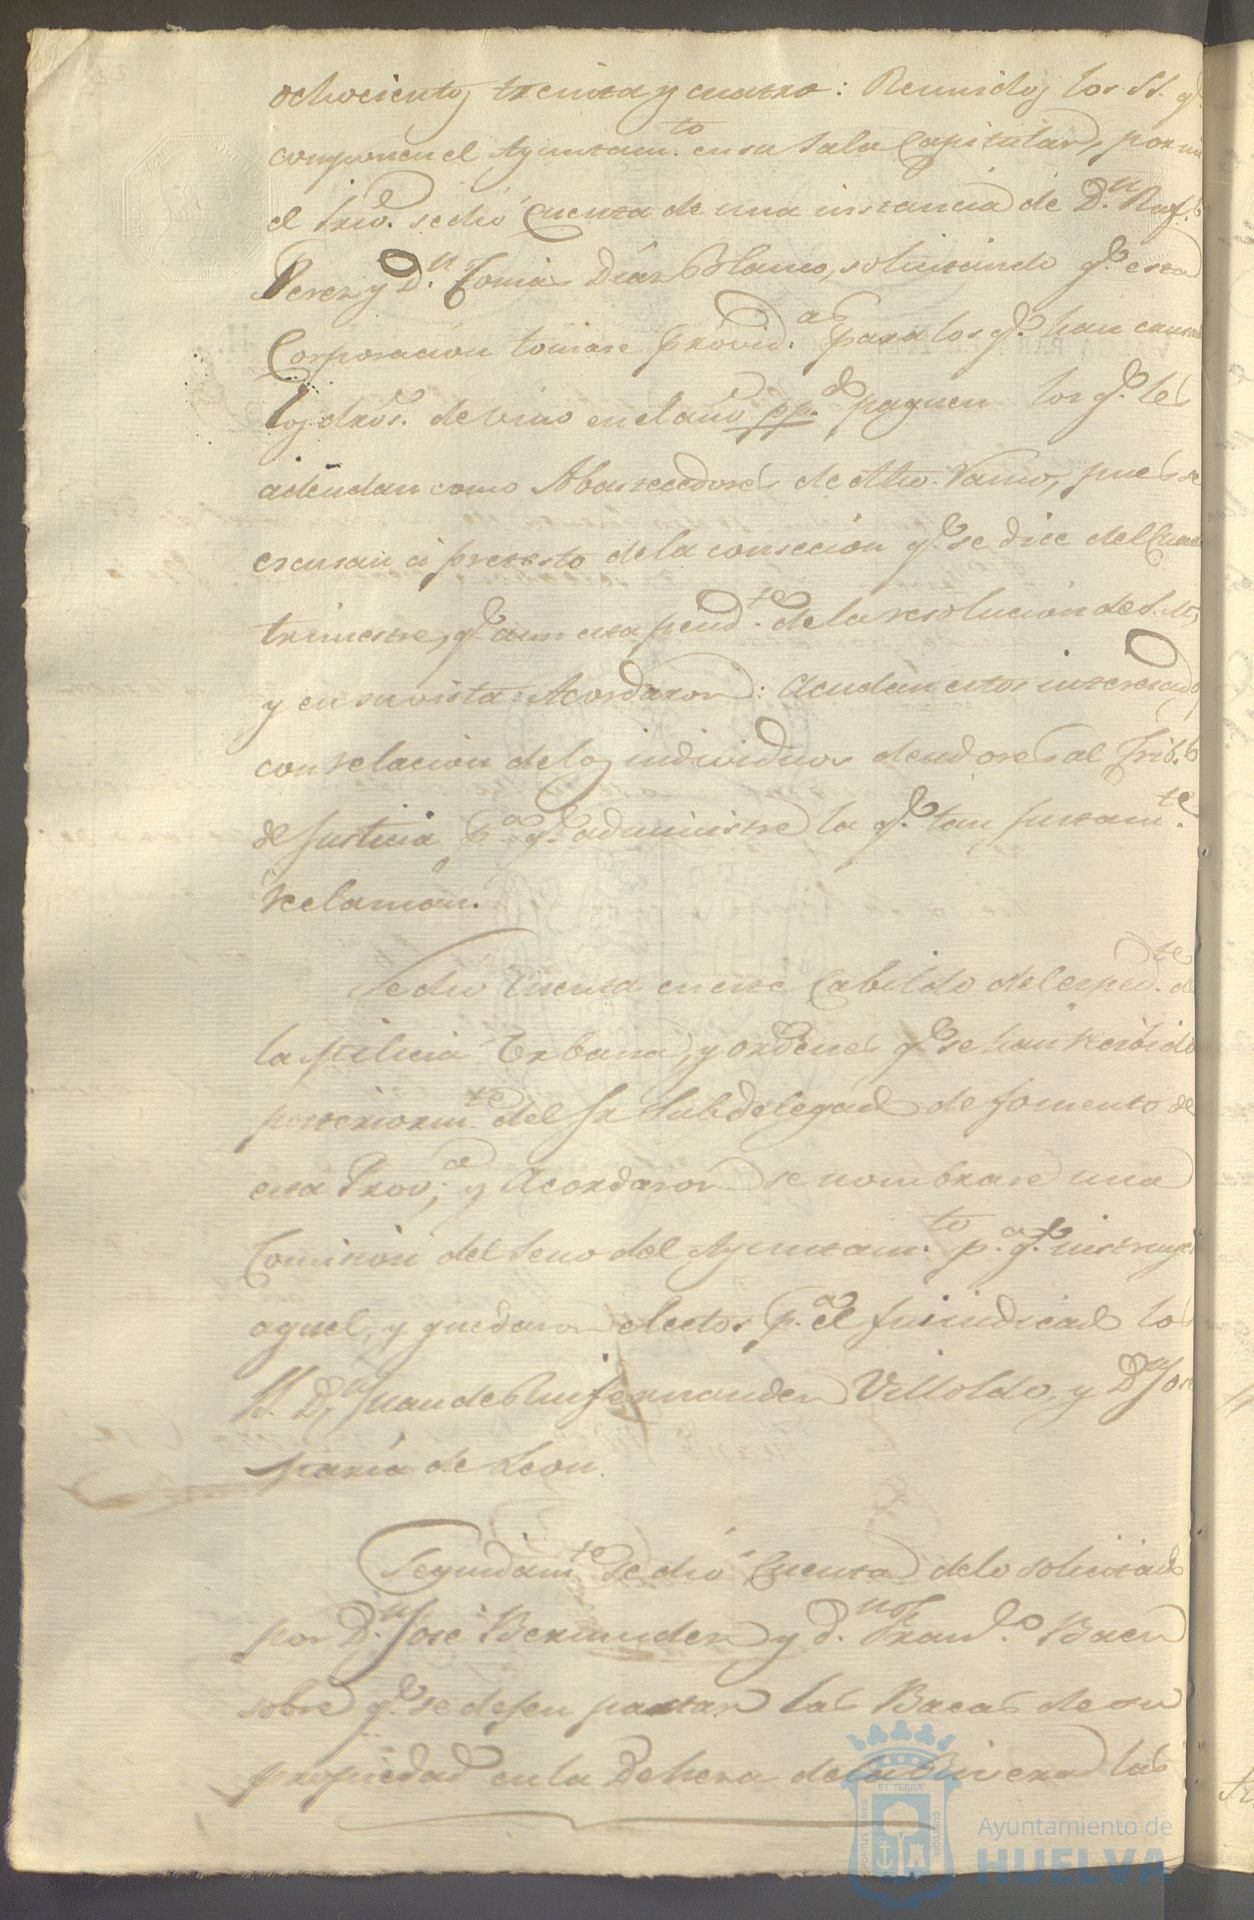 ochocientos treinta y cuatro: Reunidos los SS. q.e
componen el Ayuntam.to en su Sala Capitular, por mi
el Srio. se dió Cuenta de una instancia de D.n Raf.l
Perez y D.n Tomás Díaz Blanco, solicitando q.e esta
Corporación tomase provid.a para los q.e han causado
los dros. de vino en el año pp.do paguen los q.e les
adeudan como Abastecedores de dho. Ramo, pues se
escusan á pretesto de la consecion q.e se dice del
trimestre, q.e aun esta pend.te de la resolucion de S.M.,
y en su vista Acordaron: Acudan estos interesados
con relacion de los individuos deudores al Trib.l
de Justicia p.a q.e administre la q.e tan justam.te
reclaman.
Se dio Cuenta en este Cabildo del esped.te de
la Milicia Urbana, y ordenes q.e se han recibido
posteriorm.te del Sr Subdelegado de fomento de
esta Prov.a; y Acordaron se nombrase una
Comision del Seno del Ayuntam.to p.a q.e instruya
aquel, y quedaron electos p.a el fin indicado los
SS. D.n Juan de Fernandez Villoldo, y D.n José
Maria de Leon.
Segundam.te se dió Cuenta de lo solicitado
por D.n José Bermudez y d.n Fran.co Baez
sobre q.e se dejen pastar las Bacas de su
propiedad en la Dehesa de la Rivera las
ET TERRÆ
PORTUS MARIS
CUSTODIA
Ayuntamiento de
HUELVA